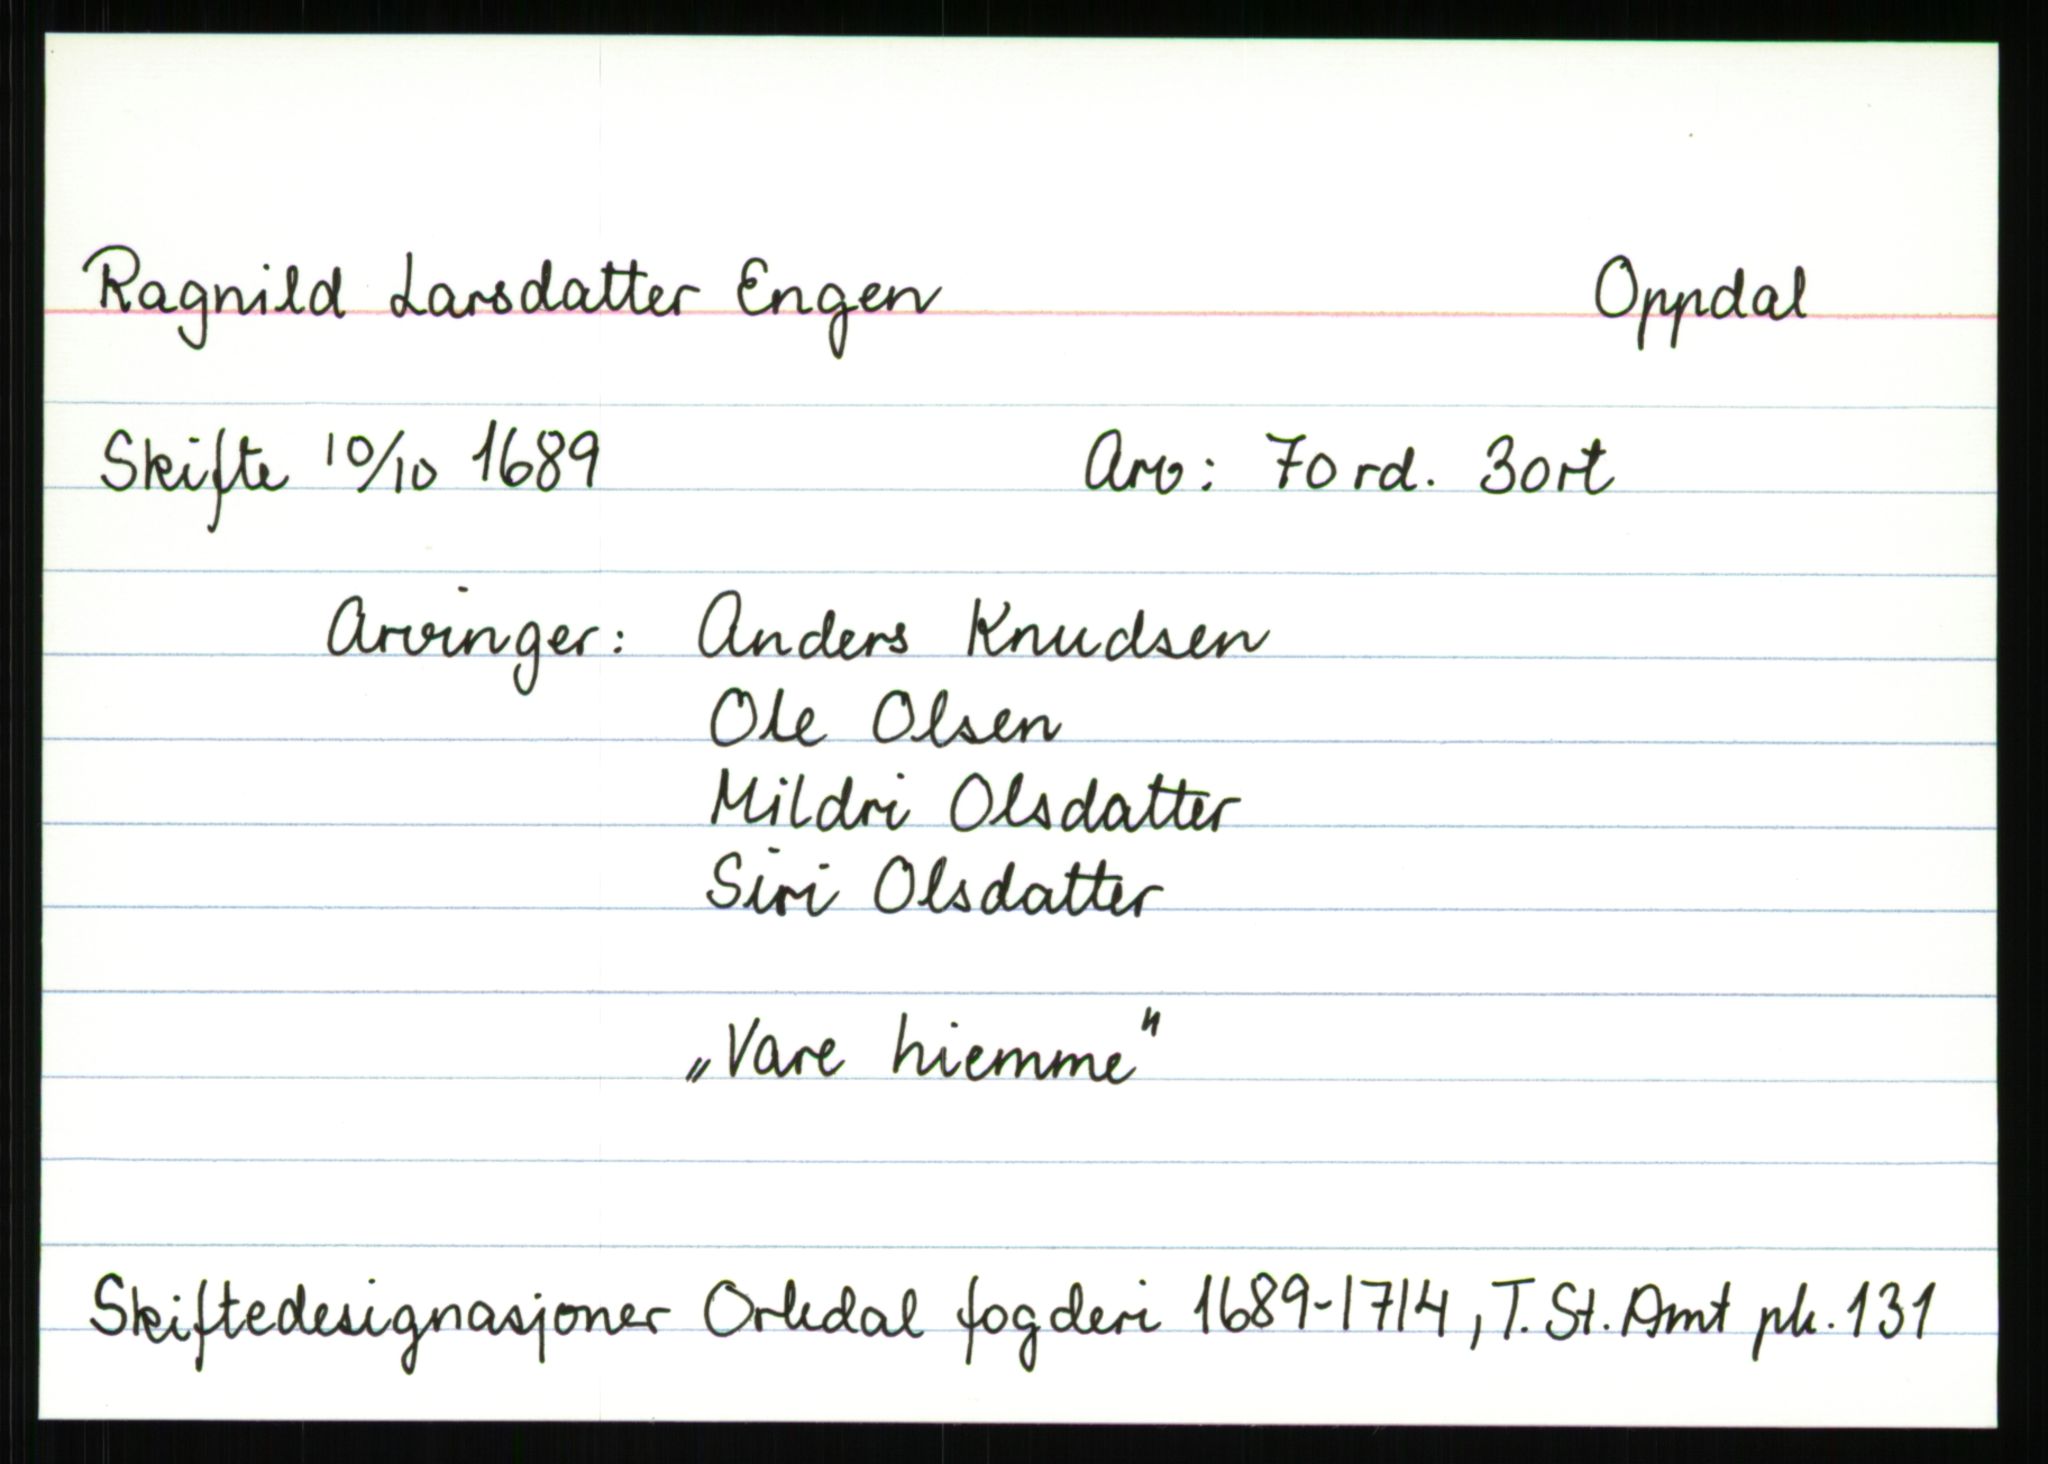 Ragnild Larsdatter Engen Oppdal
Skifte 10/10 1689 Arv: 70 rd. 3 ort
Arvinger: Anders Knudsen
Ole Olsen
Mildri Olsdatter
Siri Olsdatter
„Vare hiemme"
Skiftedesignasjoner Orkdal fogderi 1689-1714, T. St. Amt pk. 131